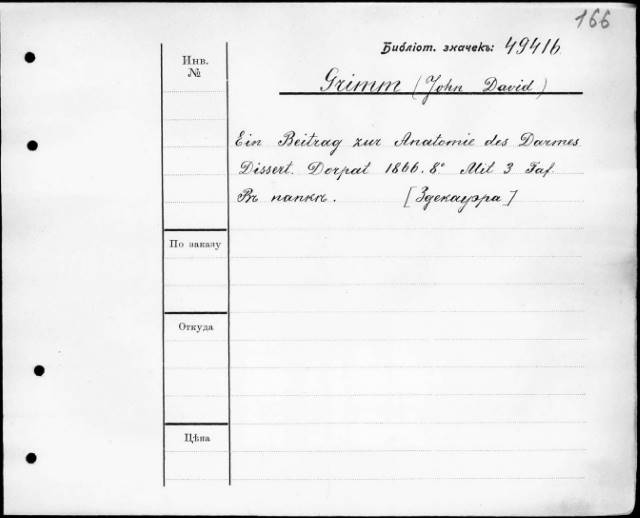 166
Библіот. значекъ: 49416
Инв.
№
Grimm (John David)
Ein Beitrag zur Anatomie des Darmes
Dissert. Dorpat 1866. 8° Mit 3 Taf.
Въ папкѣ. [Здекауэра]
По заказу
Откуда
Цѣна